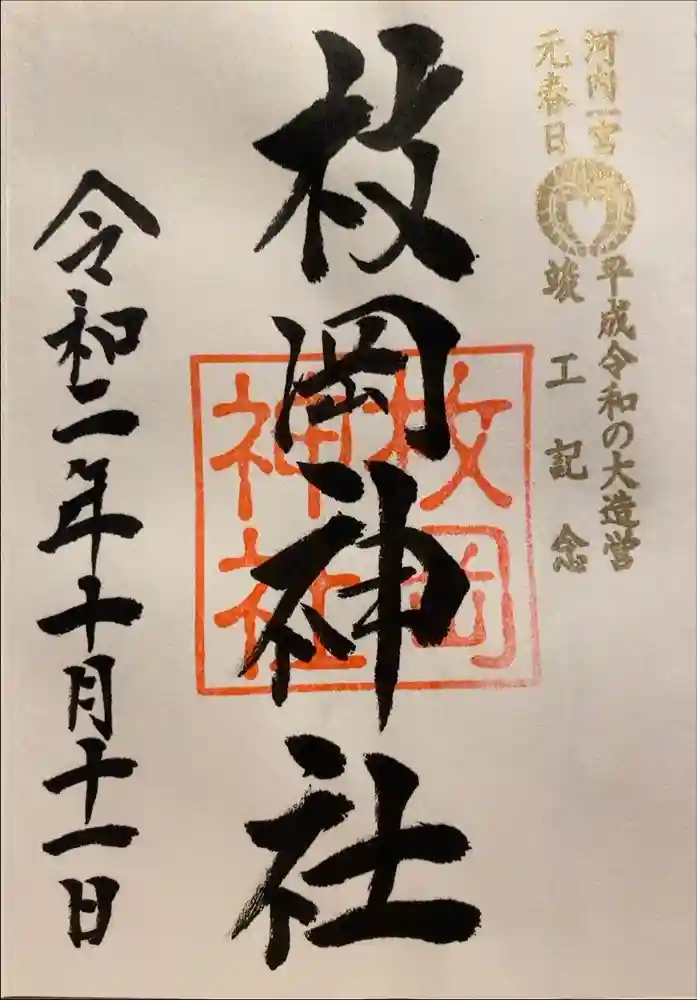 河内一宮
元春日
平成令和の大造営
竣工記念
枚岡神社
枚岡
神社
令和二年十月十一日